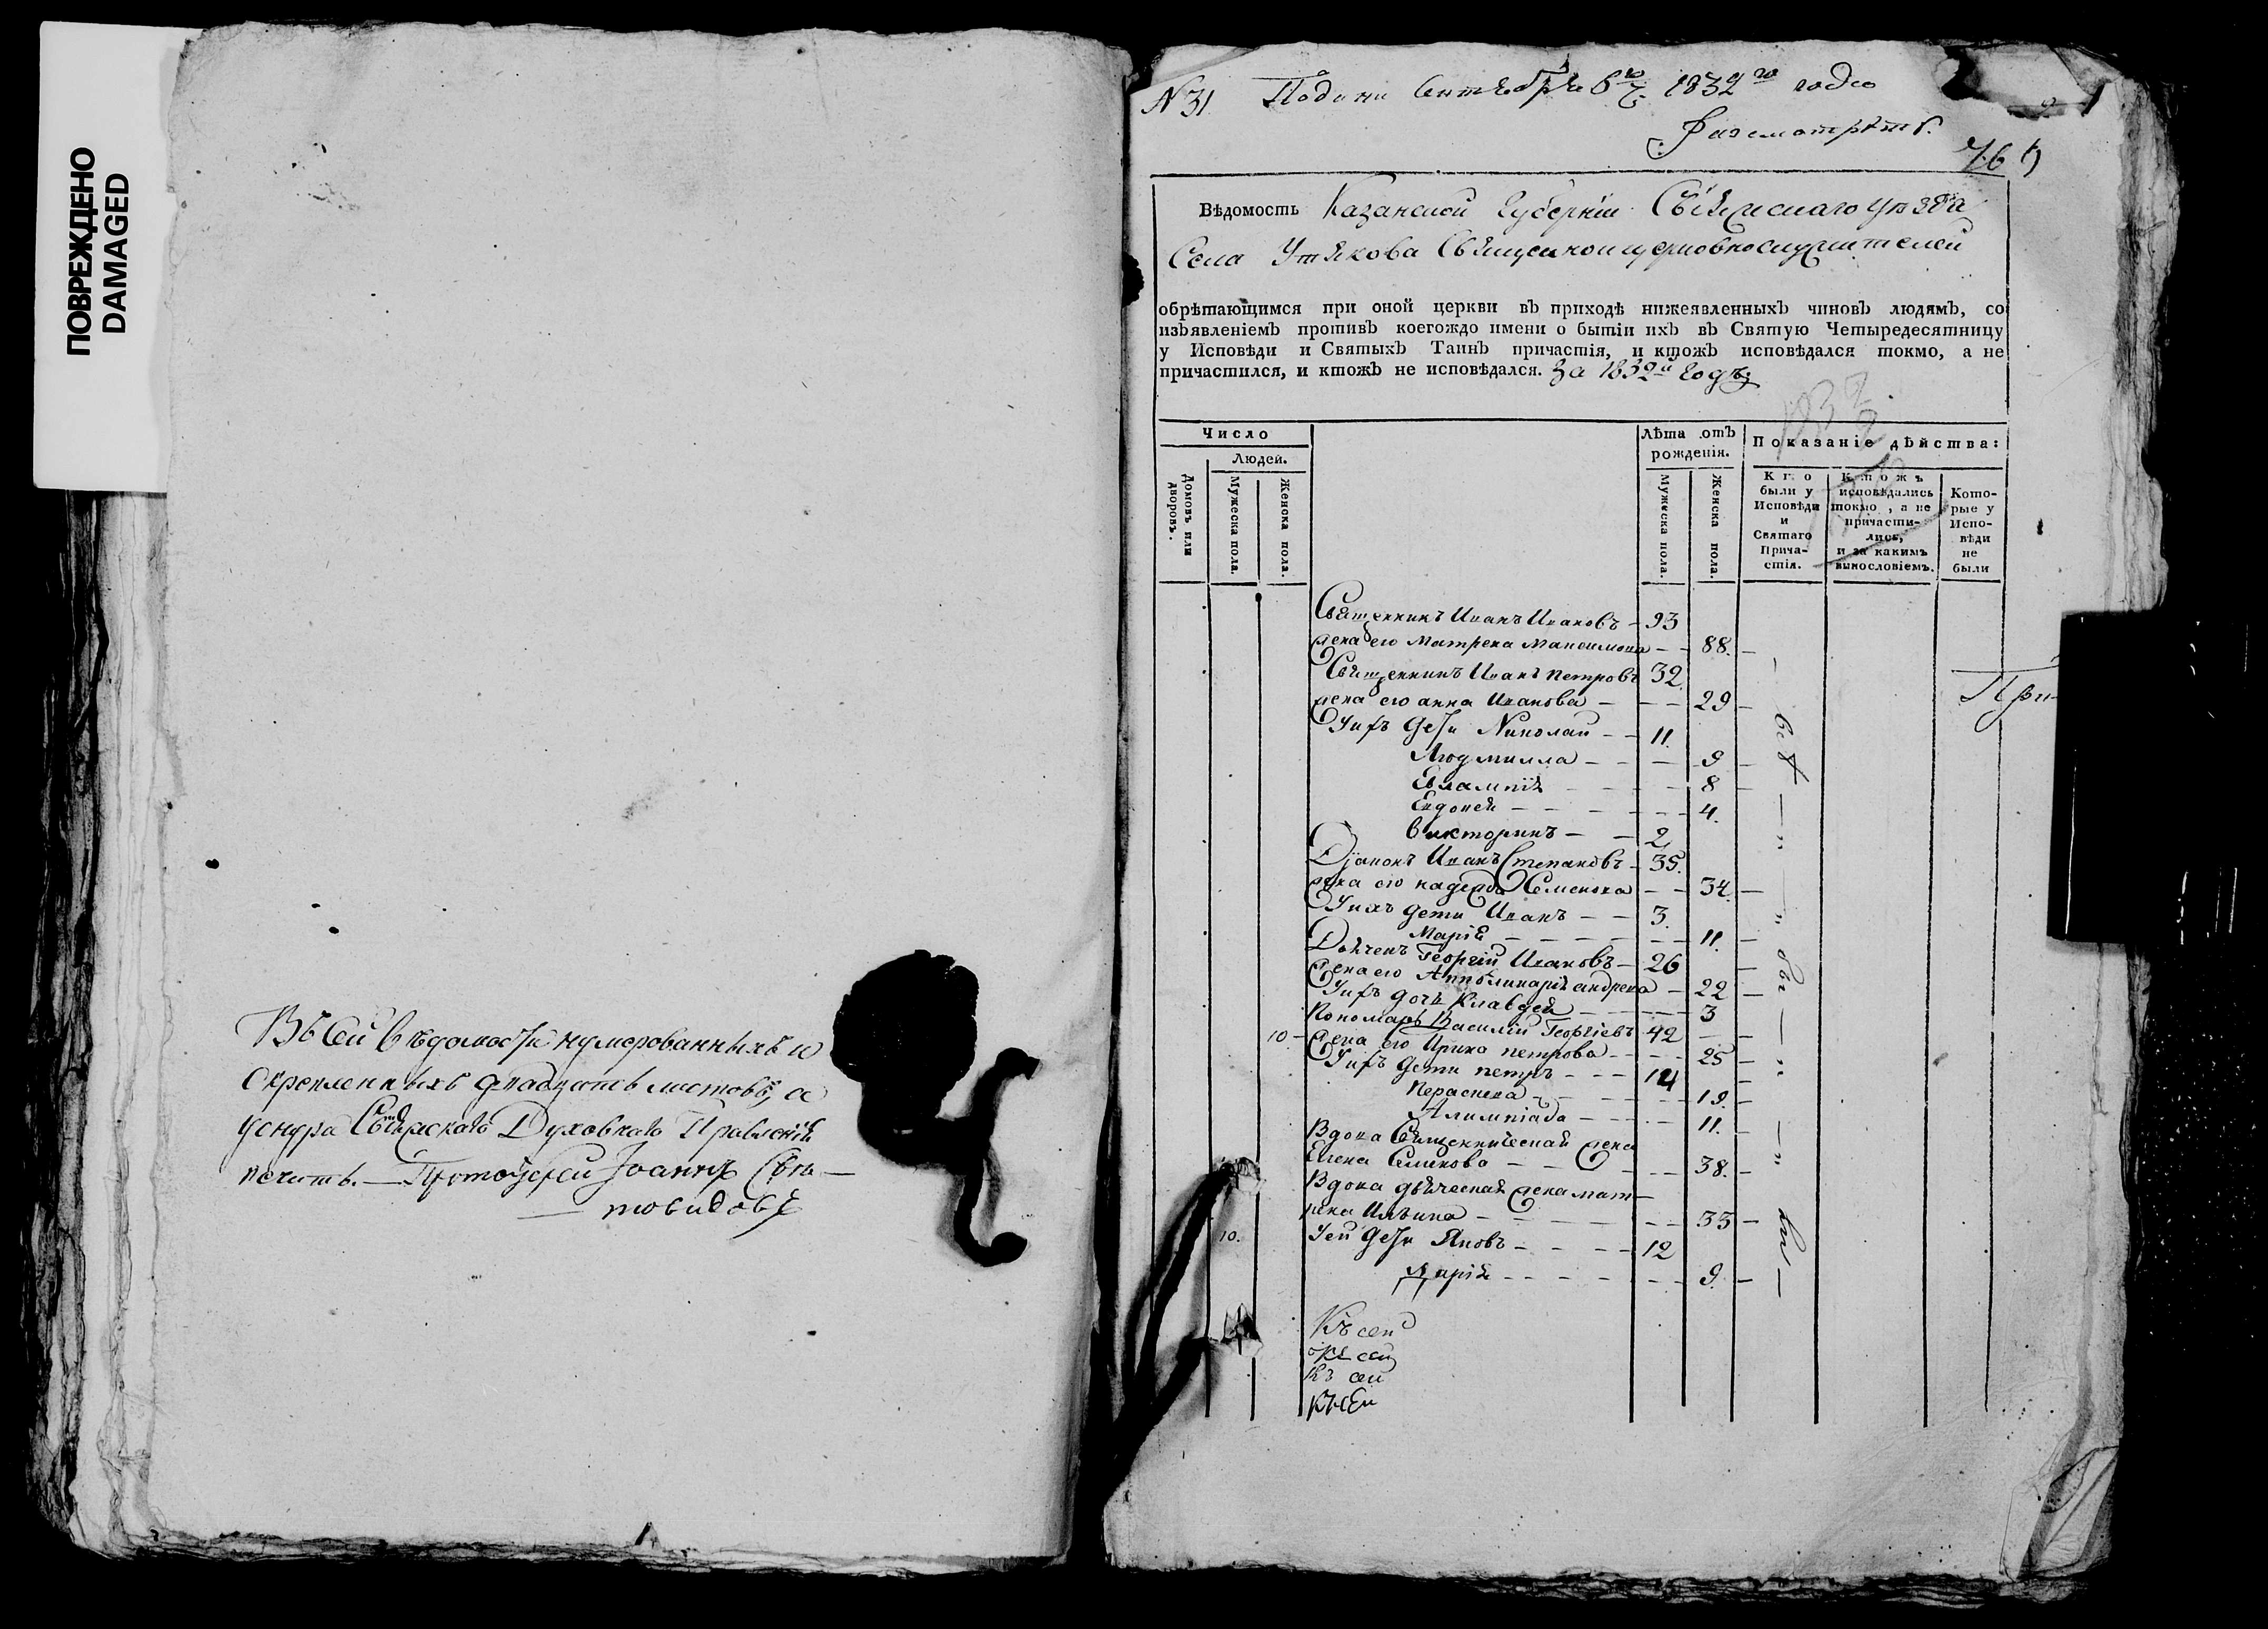 ПОВРЕЖДЕНО
DAMAGED
Въ сей ведомости нумерованныхъ и
скрепленныхъ двадцать листовъ, а
у снура Свіяжскаго Духовнаго Правленія
печать. — Протоіерей Іоаннъ
N 31 Подани Сентября 6го 1832го года
Разсмотрѣть.
Вѣдомость Казанской Губерніи Свіяжскаго уѣзда
Села Утякова Священноицерковнослужителей
обрѣтающимся при оной церкви въ приходѣ нижеявленныхъ чиновъ людямъ, со
изъявленіемъ противъ коегождо имени о бытіи ихъ въ Святую Четыредесятницу
у Исповѣди и Святыхъ Таинъ причастія, и ктожъ исповѣдался токмо, а не
причастился, и ктожъ не исповѣдался. За 1832й годъ
Число
Людей.
Домовъ или дворовъ.
Мужеска пола.
Женска пола.
Лѣта отъ рожденія.
Мужеска пола.
Женска пола.
Показаніе дѣйства:
Кто были у Исповѣди и Святаго Причастія.
Ктожъ исповѣдались токмо, а не причастились, и за какимъ винословіемъ.
Которые у Исповѣди не были
Священникъ Иванъ Ивановъ — 93
жена его Матрена Максимова — — 88.
Священникъ Иванъ Петровъ 32
жена его анна Иванова — — — 29
У ихъ дети Николай — — 11.
Людмилла — — — 9
Евлампія — — — 8
Евдокея — — — 4.
Викторинъ — — 2
Діаконъ Иванъ Степановъ — 35.
жена его надежда Семенова — — 34.
У ихъ дети Иванъ — — 3.
Марія — — — 11.
Дьячекъ Георгій Ивановъ — 26
жена его Апполинарія андреева — 22
У ихъ дочь Клавдея — — — 3
Пономарь Василій Георгіевъ 42
10 — жена его Ирина петрова — — — 25
У ихъ дети петръ — — — 14
Параскева — — — 19.
Алимпіада — — — 11.
Вдова Священническая жена
Елена Семенова — — — 38.
Вдова дьяческая жена мат-
рена Ильина — — — 33
10. У ей дети Яковъ — — — 12
Марія — — — 9.
всѣ — „ — „ бы — „ — „ ли —
При-
Къ сей
къ сей
къ сей
къ сей